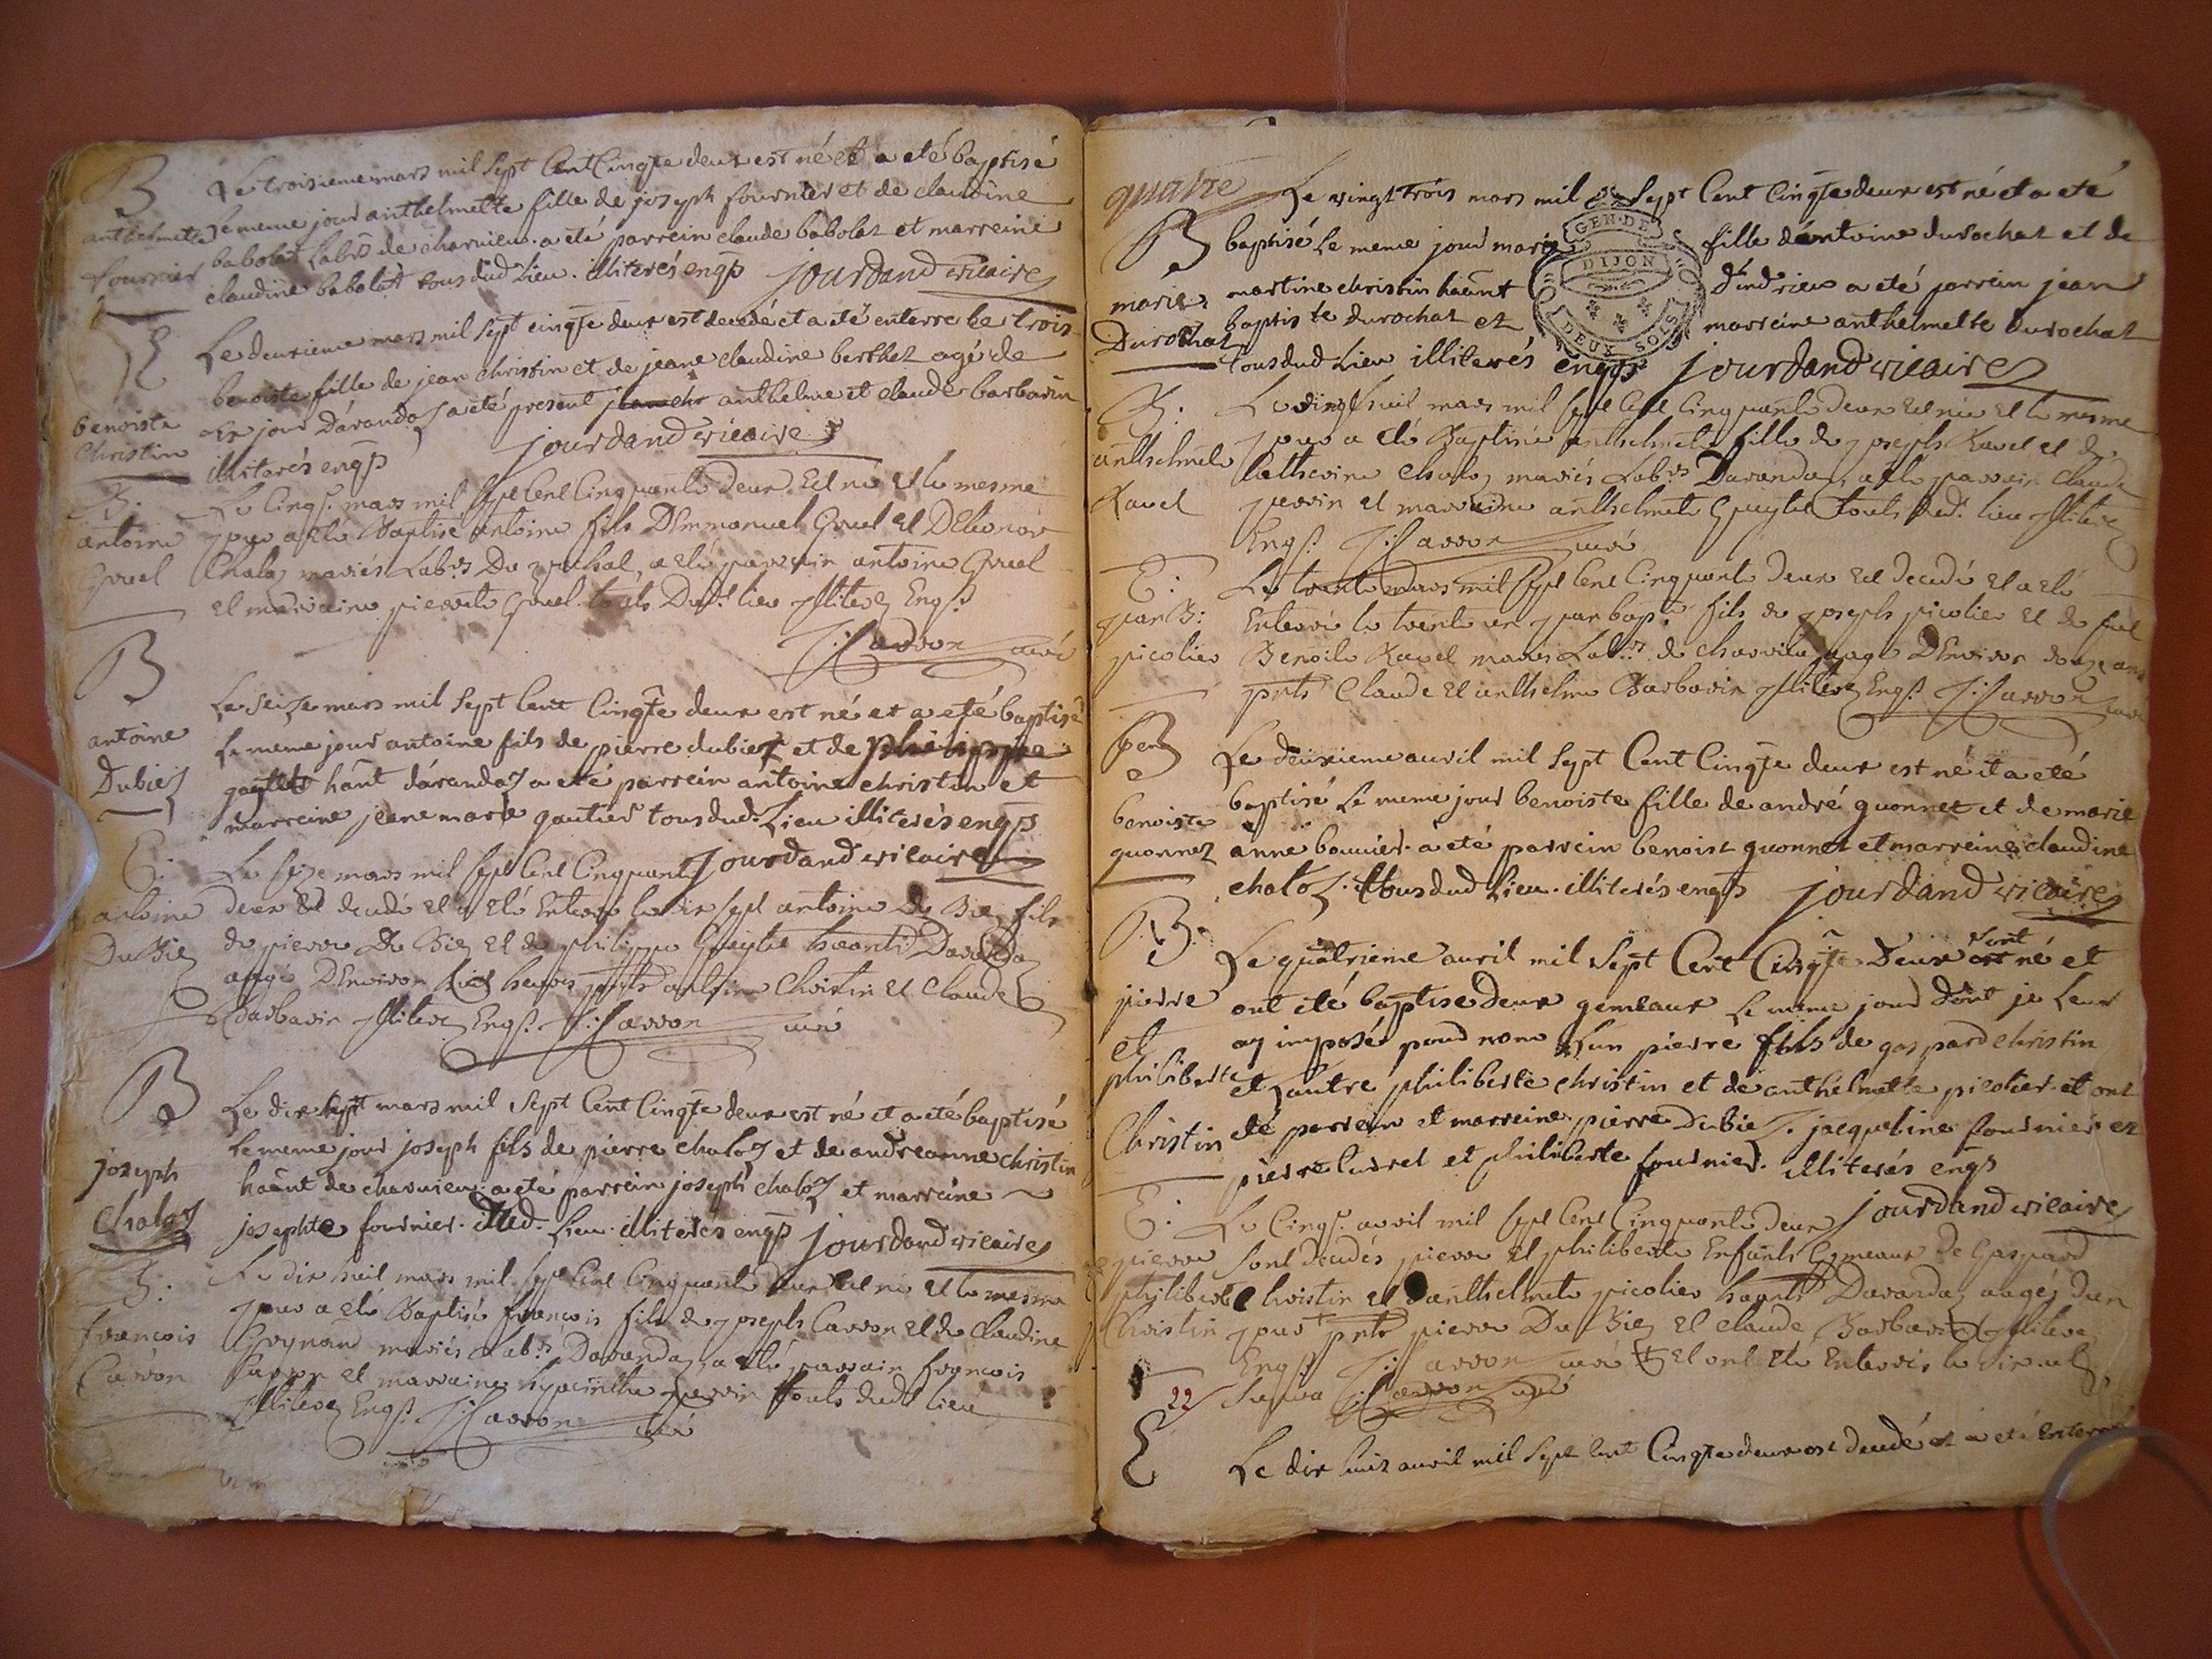 B Le troisieme mars mil sept Cent Cinqte deux est né et a eté baptisé
anthelmette le meme jour anthelmette fille de joseph fournier et de claudine
fournier babolat Labrs de charvieu. a eté parrein claude babolat et marreine
claudine babolat tous dud Lieu. illiterés enqs jourdand vicaire
E Le deuxieme mars mil sept cinqte deux est decedé et a eté enterre Le trois
benoiste fille de jean christin et de jeane claudine berthet agé de
benoiste un jour Dárandaz a eté present anthelme et claude barbarin
Christin illiterés enqs jourdand vicaire
B. Le Cinqe mars mil sept Cent Cinquante Deux Est né et le mesme
antoine jour a eté Baptisé antoine fils DEmmanuel Gruel et DEleonor
Gruel Chaloz mariés Labrs Du a eté parrain antoine Gruel
et marraine pierrete Gruel touts Dudt lieu illiterez Enqs
Carron curé
B Le seize mars mil sept Cent Cinqte deux est né et a eté baptisé
antoine Le meme jour antoine fils de pierre dubiez et de philippe
Dubiez hant dárandaz a eté parrein antoine christin et
marreine jeane marie gautier tous dud. Lieu illiterés enqs
jourdand vicaire
E. Le seize mars mil sept Cent Cinquante
antoine deux Est decedé et a eté Enterré le dix sept antoine Du Biez fils
Du Biez de pierre Du Biez et de philippe hants Darandaz
aagé DEnviron heures pnts antoine Christin et Claude
Barbarin illiterez Enqs Carron curé
B Le dix sept mars mil sept Cent Cinqte deux est né et a eté baptisé
joseph Le meme jour joseph fils de pierre chaloz et de andreanne christin
haant de charvieu. a eté parrein joseph chaloz et marreine
Chaloz josephte fournier. dud. Lieu. illiterés enqs jourdand vicaire
B. Le dix huit mars mil sept Cent Cinquante deux Est né et le mesme
francois jour a eté Baptisé francois fils de joseph Carron et de Claudine
Carron mariés Labrs Darandaz, a eté parrain francois
Carron et marraine hyacinthe perrin touts dudt lieu
illiterez Enqs Carron curé
quatre Le vingt trois mars mil Sept Cent Cinqte deux est né et a eté
B baptisé Le meme jour marie fille dántoine durochat et de
marie martine christin haant dándrieu a eté parrein jean
Durochat baptiste durochat et marreine anthelmette durochat
tous dud Lieu illiterés enqs jourdand vicaire
GEN. DE DIJON DEUX SOLS
B. Le vingt huit mars mil sept Cent Cinquante deux Est née et le mesme
anthelmete jour a eté Baptisée anthelmete fille de joseph Ravel et de
Ravel Catherine Chaloz mariés Labrs Darandaz, a eté parrain Claude
perrin et marraine anthelmete touts dudt lieu illiterez
Enqs Carron curé
E. Le trente mars mil sept Cent Cinquante deux Est decedé et a eté
jean B: Enterré le trente un jean bapte fils de joseph picolier et de
picolier Benoite Ravel mariés Labrs de charvieu aagé DEnviron douze ans
pnts Claude et anthelme Barbarin illiterez Enqs Carron curé
B Le deuxieme avril mil sept Cent Cinqte deux est né et a eté
benoiste baptisé Le meme jour benoiste fille de andré guonnet et de marie
guonnet anne bouvier. a eté parrein benoist guonnet et marreine claudine
chaloz. tous dud Lieu. illiterés enqs jourdand vicaire
B. Le quatrieme avril mil Sept Cent Cinqte Deux sont né et
pierre ont été baptise deux gemeaux Le meme jour dont je Leur
et ay imposé pour nom Lun pierre fils de gaspard christin
philiberte et Lautre philiberte christin et de anthelmette picolier. et ont
Christin eté parrein et marreine pierre Dubiez. jacqueline fournier et
pierre Curret et philiberte fournier. illiterés enqs
jourdand vicaire
E. Le Cinqe avril mil sept Cent Cinquante deux
pierre sont decedés pierre et philiberte Enfants Gemeaux de Gaspard
philiberte Christin et danthelmete picolier hants Darandaz aagéz dun
Christin jour pnts pierre Du Biez et claude Barbarin illiterez
Enqs Carron curé et ont eté Enterrés le six
22 supra Carron curé
E Le dix huit avril mil sept Cent Cinqte deux est decedé et a eté Enterré